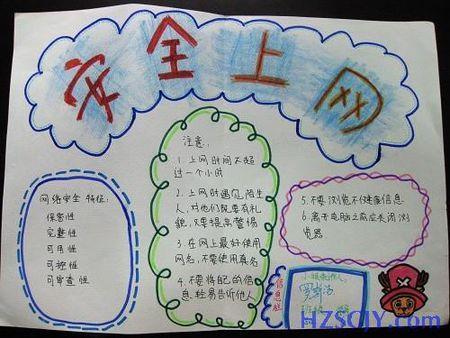 安全上网
网络安全 特征：
保密性
完整性
可用性
可控性
可审查性
注意：
1. 上网时间不超
过一个小时
2. 上网时遇见陌生
人，对他们既要有礼
貌，又要提高警惕
3. 在网上最好使用
网名，不要使用真名
4. 不要将自己的信
息轻易告诉他人
5. 不要浏览不健康信息
6. 离开电脑之前应关闭浏
览器
信息栏
HZSQJY.com